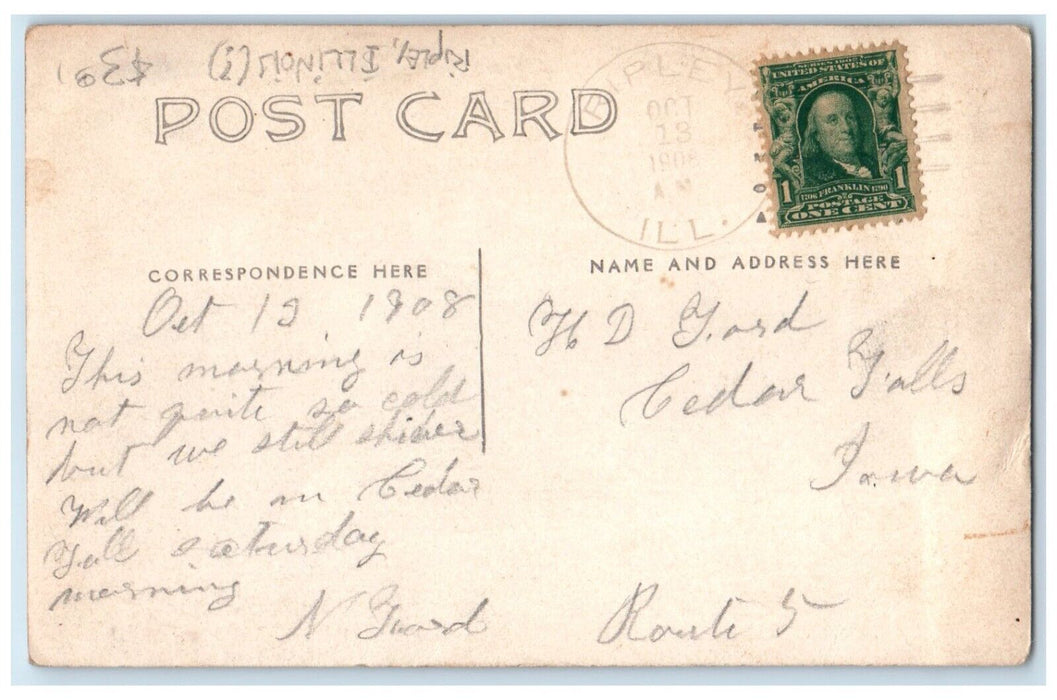 $3 00
Ripley, ILLINOIS (?)
POST CARD
RIPLEY
OCT
13
1908
A.M.
ILL.
SERIES 1902
UNITED STATES OF
AMERICA
1706 FRANKLIN 1790
1 1
POSTAGE
ONE CENT
CORRESPONDENCE HERE
Oct 13 1908
This morning is
not quite so cold
but we still shiver
Will be in Cedar
Fall saturday
morning
N
NAME AND ADDRESS HERE
H D
Cedar Falls
Iowa
Route 5